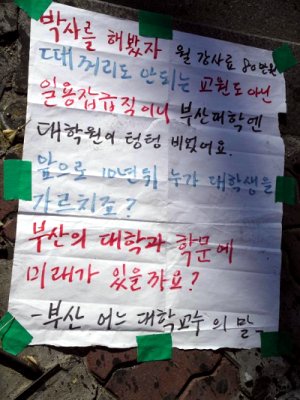 박사를 해봤자 월 강사료 80만원
때꺼리도 안되는 교원도 아닌
일용잡급직이니 부산대학엔
대학원이 텅텅 비었어요.
앞으로 10년뒤 누가 대학생을
가르치죠?
부산의 대학과 학문에
미래가 있을까요?
-부산 어느 대학교수의 말